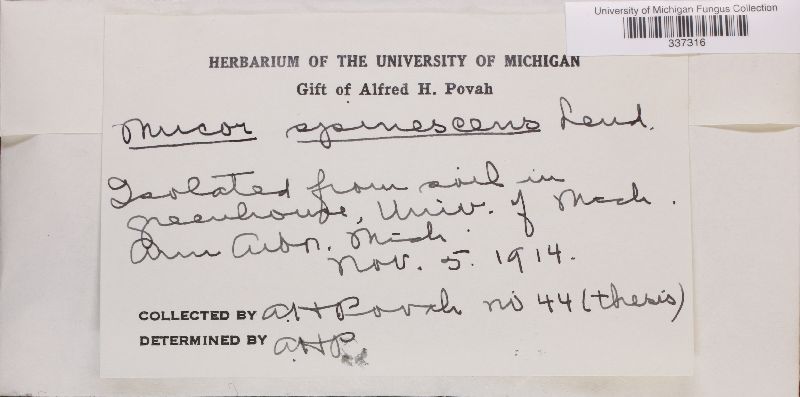 University of Michigan Fungus Collection
337316
HERBARIUM OF THE UNIVERSITY OF MICHIGAN
Gift of Alfred H. Povah
Mucor spinescens Lend.
Isolated from soil in
greenhouse, Univ. of Mich.
Ann Arbor. Mich.
Nov. 5. 1914.
COLLECTED BY AHPovah no 44 (thesis)
DETERMINED BY AHP.